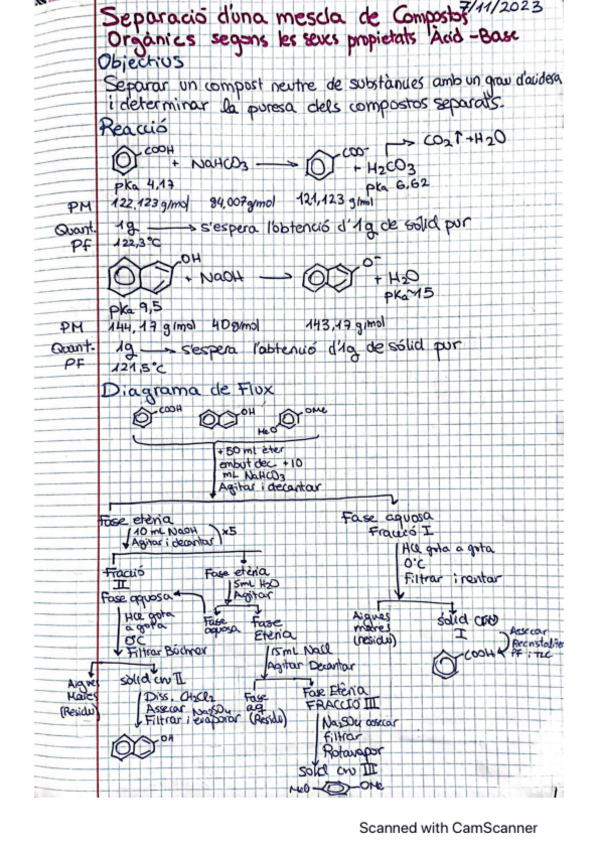 7/11/2023
Separació d'una mescla de Compostos
Orgànics segons les seves propietats Àcid-Base
Objectius
Separar un compost neutre de substàncies amb un grau d'acidesa
i determinar la puresa dels compostos separats.
Reacció
COOH + NaHCO3 → COO- + H2CO3 → CO2↑ + H2O
pka 4,17 pka 6,62
PM 122,123 g/mol 84,007 g/mol 121,123 g/mol
Quant. 1g → s'espera l'obtenció d'1g de sòlid pur
PF 122,3°C
OH + NaOH → O- + H2O
pka 9,5 pKa~15
PM 144,17 g/mol 40 g/mol 143,17 g/mol
Quant. 1g → s'espera l'obtenció d'1g de sòlid pur
PF 121,5°C
Diagrama de Flux
COOH OH OMe
MeO
+50 ml èter
embut dec. +10
mL NaHCO3
Agitar i decantar
Fase etèria
10 mL NaOH
Agitar i decantar
x5
Fase aquosa
Fracció I
HCl gota a gota
0°C
Filtrar i rentar
Fracció
II
Fase aquosa
Fase etèria
5mL H2O
Agitar
HCl gota
a gota
0°C
Filtrar Büchner
Fase
aquosa
Fase
Etèria
15mL NaCl
Agitar Decantar
Aigües
mares
(residu)
sòlid cru
I
COOH
Assecar
Recristal·litzar
PF i TLC
Aigües
Mares
(Residu)
sòlid cru II
Diss. CH2Cl2
Assecar Na2SO4
Filtrar i evaporar
OH
Fase
aq
(Residu)
Fase Etèria
FRACCIÓ III
Na2SO4 assecar
filtrar
Rotavapor
sòlid cru III
MeO OMe
1
Scanned with CamScanner